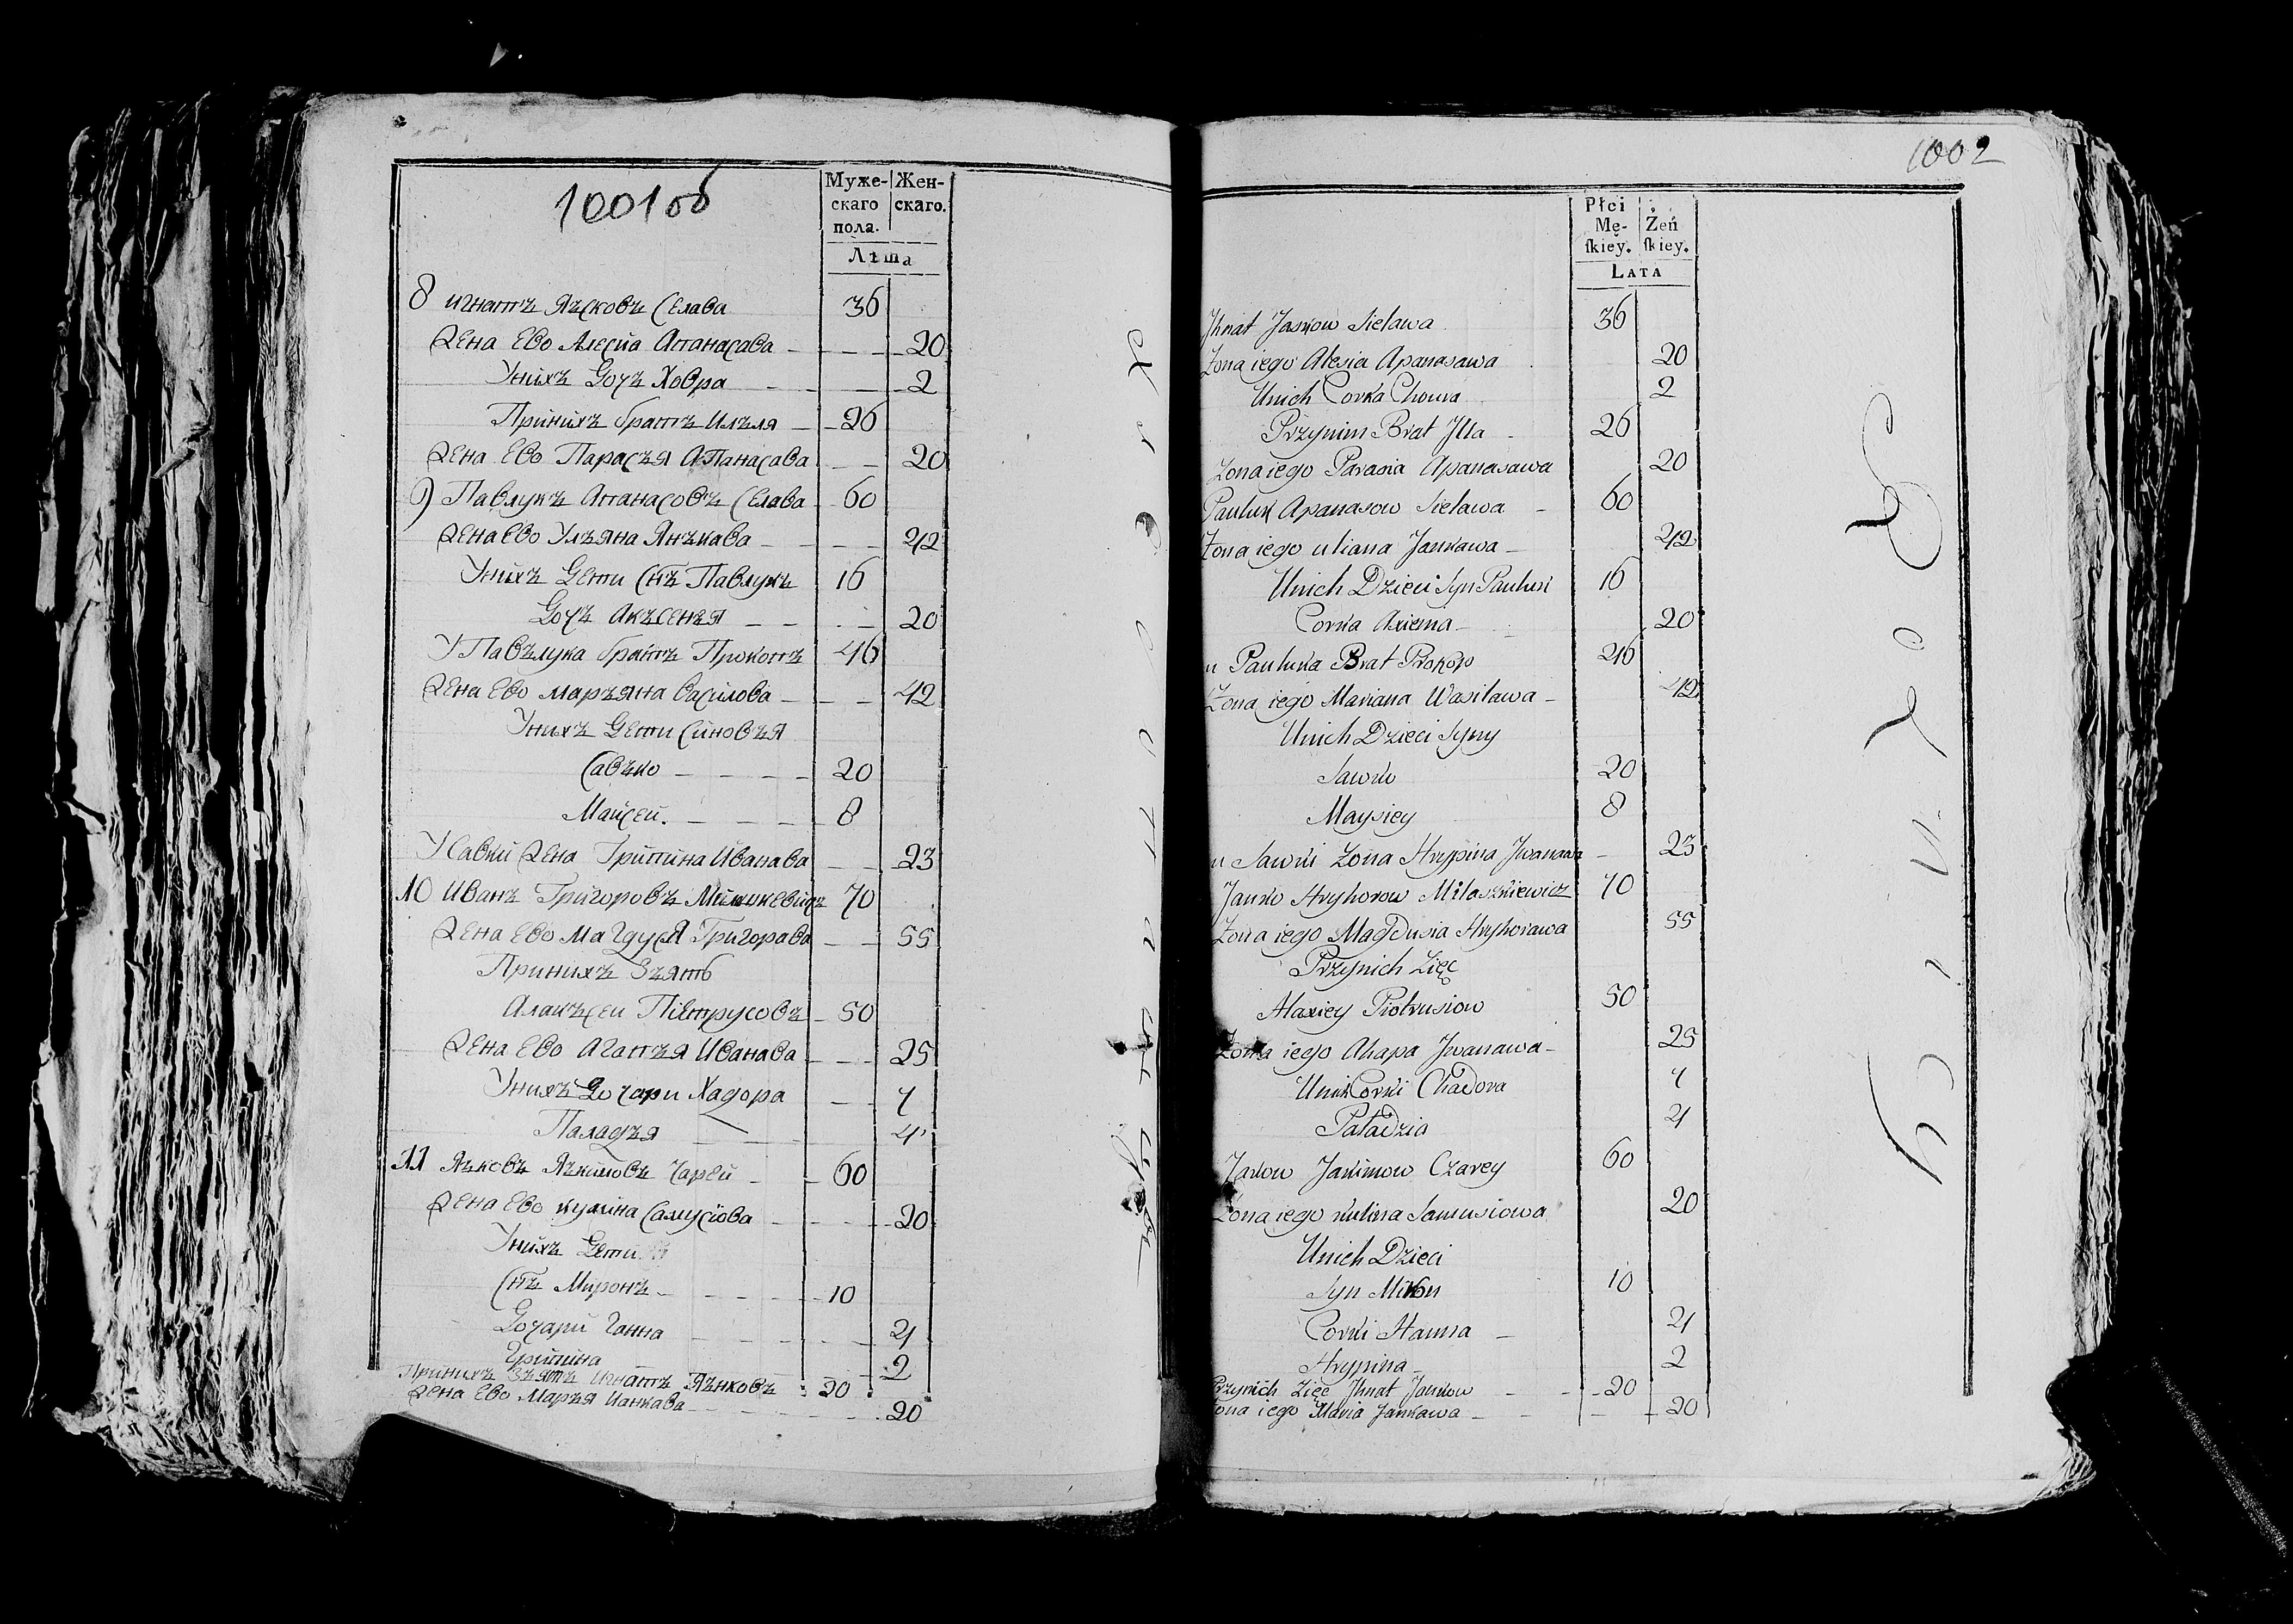 1001 об
Муже-
скаго
пола.
Жен-
скаго.
Лѣта
8 игнатъ Яъсковъ Селава 36
Жена Ево Алесиа Апанасава 20
Унихъ Дочъ Ховра 2
Принихъ братъ Илъля 26
Жена Ево Парасъя Апанасава 20
9 Павлукъ Апанасовъ Селава 60
Жена Ево Улъяна Янъкава 42
Унихъ Дети Снъ Павлукъ 16
Дочъ Акъсенъя 20
У Павълука братъ Прокопъ 46
Жена Ево маръяна Василова 42
Унихъ Дети Синовъя
Савъко 20
Майсей. 8
У Савки Жена Грипина Иванава 23
10 Иванъ Григоровъ 70
Жена Ево Магдуся Григорава 55
Принихъ Зъять
Алакъсеи Піетрусовъ 50
Жена Ево Агапъя Иванава 25
Унихъ Дочари Хадора 7
Паладъя 4
11 Яъковъ Яъкимовъ Чарей 60
Жена Ево кулина Самусіова 20
Унихъ Дети
Снъ Миронъ 10
Дочарй Ганна 4
Грипина 2
Принихъ Зъятъ Игнатъ Янъковъ 20
Жена Ево Маръя Ианкава 20
1002
Płci
Mę-
ſkiey.
Żeń
ſkiey.
LATA
Jhnat Jaskow Sielawa 36
Zona iego Alesia Apanasawa 20
Unich Corka Chowra 2
Przynim Brat Jlla 26
Zona iego Parasia Apanasawa 20
Pauluk Apanasow Sielawa 60
Zona iego uliana Jankawa 42
Unich Dzieci Syn Pauluk 16
Corka Axienia 20
u Pauluka Brat Prokop 46
Zona iego Mariana Wasilawa 42
Unich Dzieci Syny
Sawko 20
Maysiey 8
u Sawki Zona Hrypina Jwanawa 23
Janko Hryhorow Milaszkiewicz 70
Zona iego Magdusia Hryhorawa 55
Przynich Zięc
Alaxiey Piotrusiow 50
Zona iego Ahapa Jwanawa 25
Unich Corki Chadora 7
Paladzia 4
Jakow Jakimow Czarey 60
Zona iego kulina Samusiowa 20
Unich Dzieci
Syn Miron 10
Corki Hanna 4
Hrypina 2
Przynich Zięc Jhnat Jankow 20
Zona iego Maria Jankawa 20